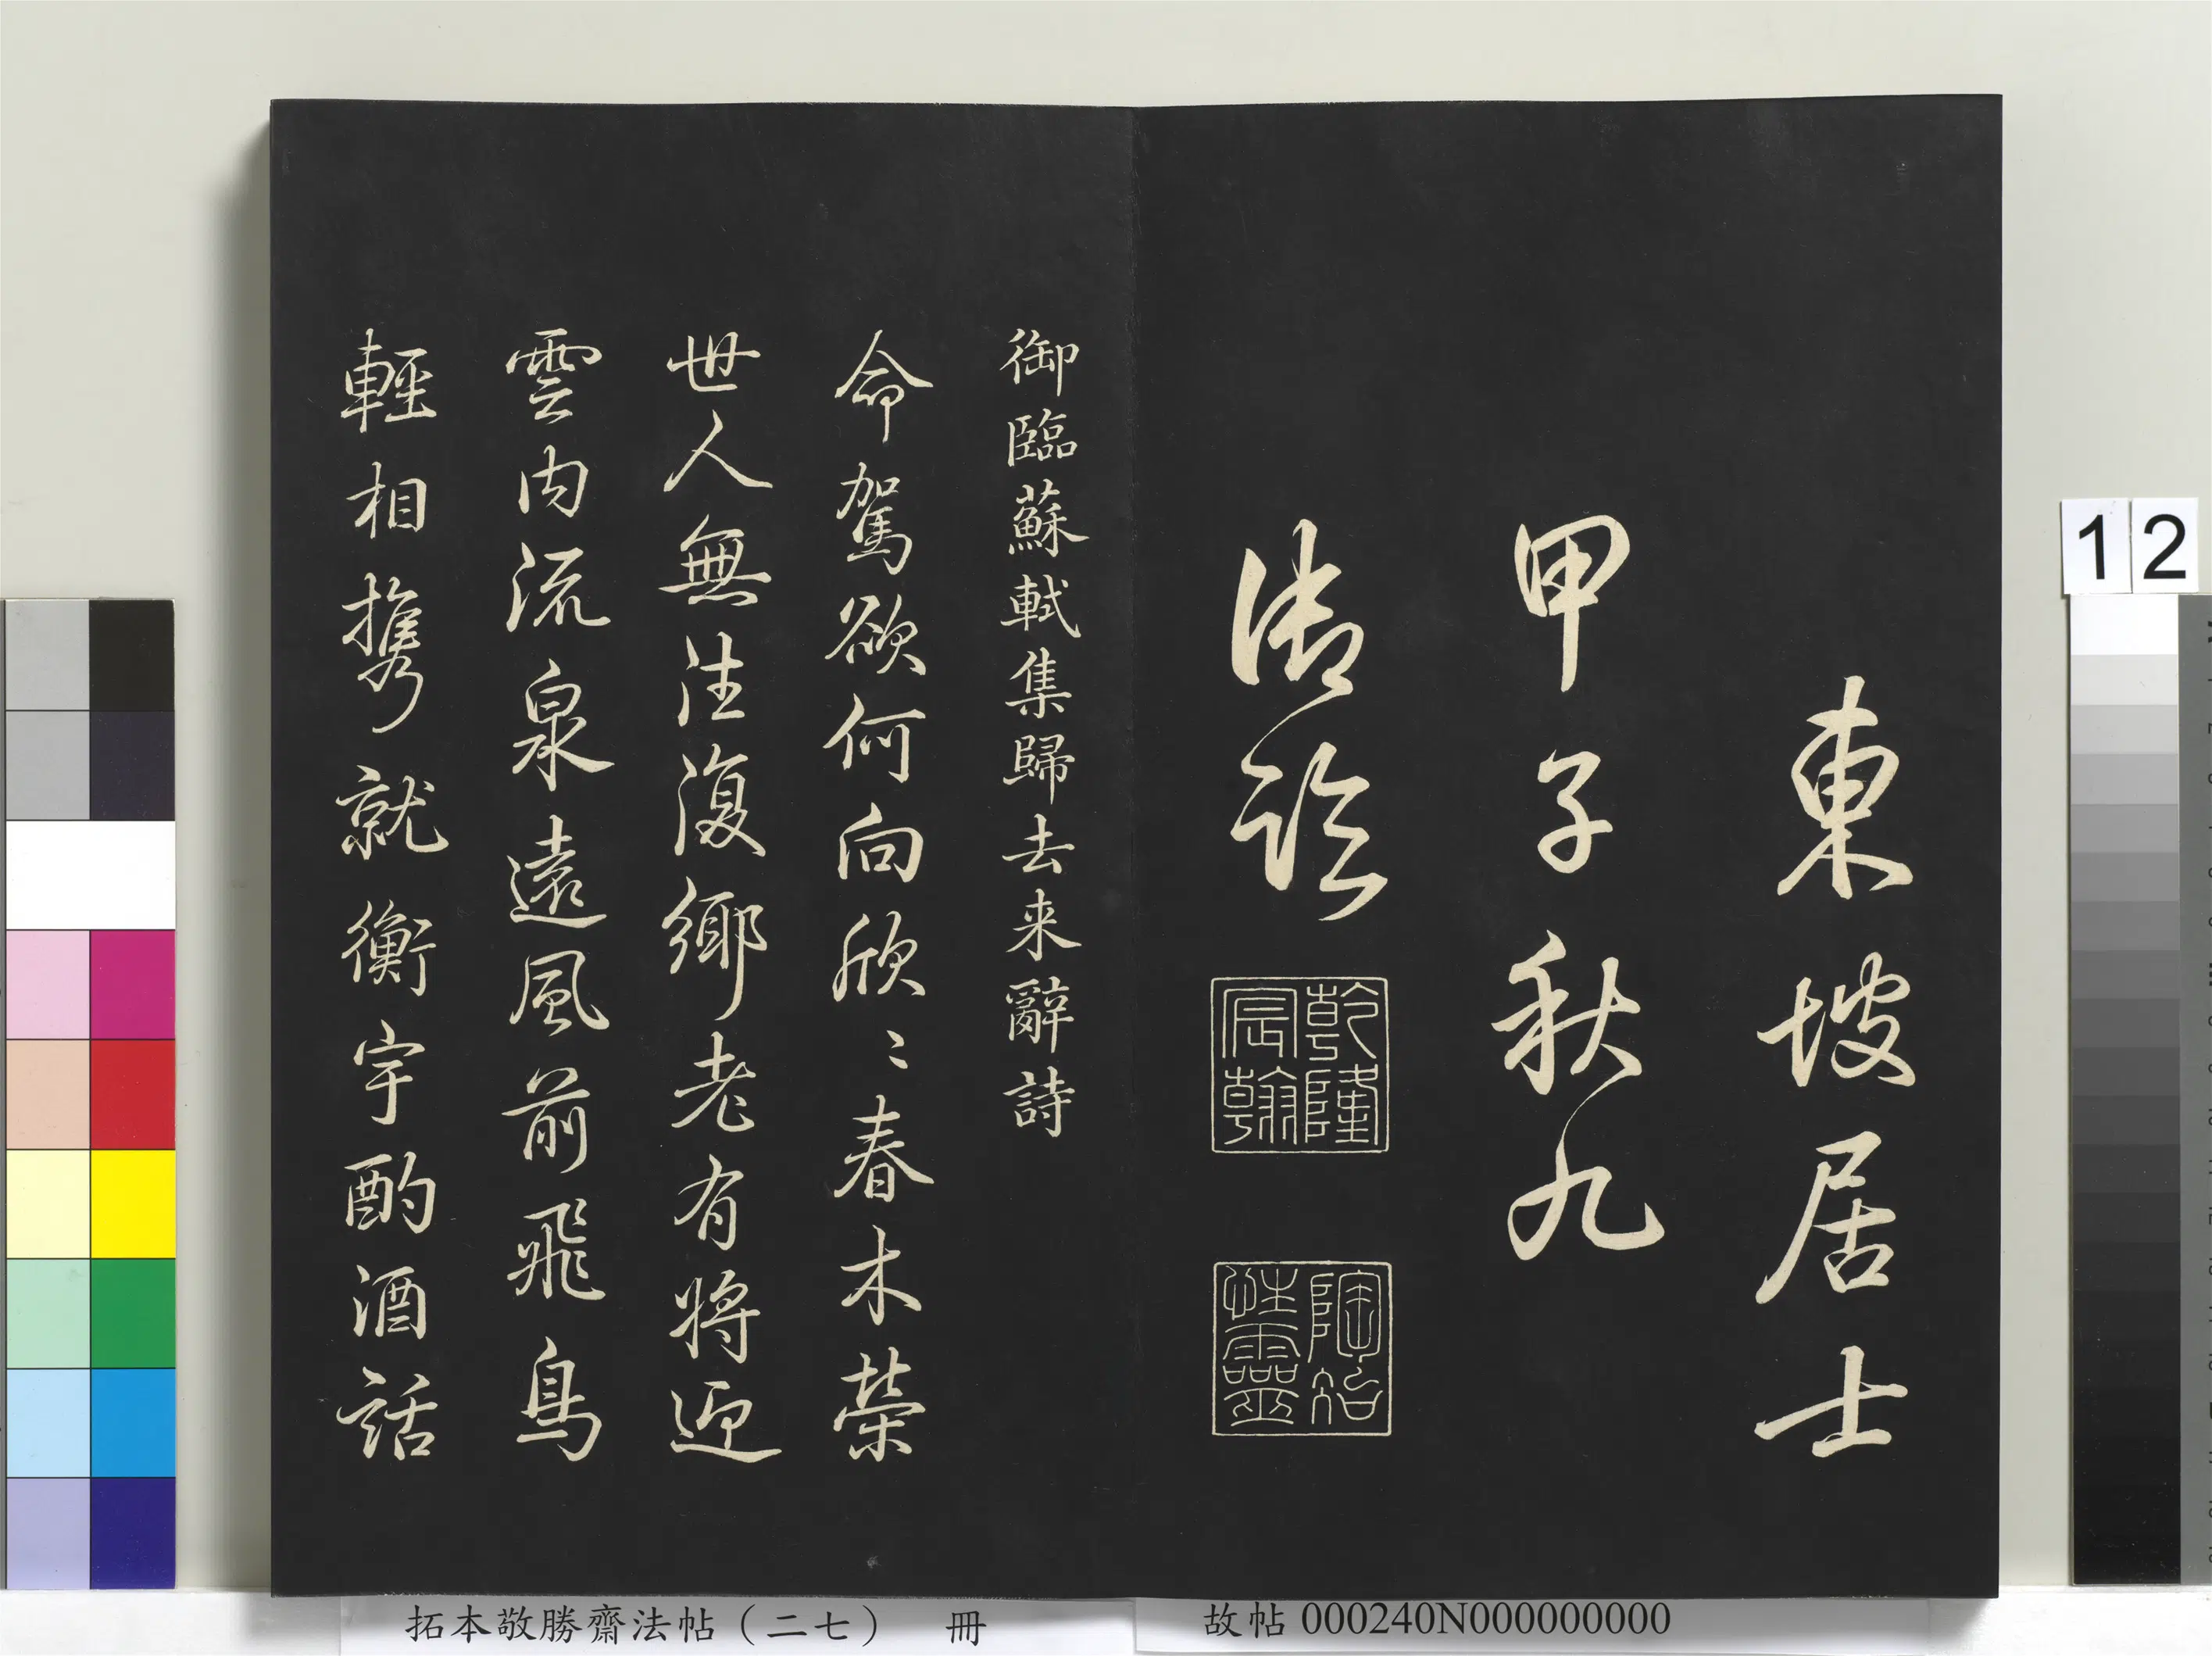 東坡居士
甲子秋九
御臨
乾隆
宸翰
陶冶
性靈
御臨蘇軾集歸去来辭詩
命駕欲何向欣〻春木榮
世人無往復鄉老有將迎
雲内流泉遠風前飛鳥
輕相携就衡宇酌酒話
12
拓本敬勝齋法帖（二七） 冊
故帖 000240N000000000